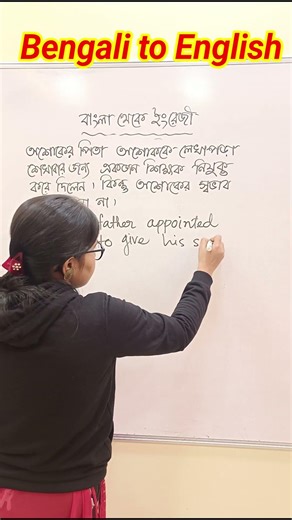 Bengali to English
বাংলা থেকে ইংরেজী
অশোকের পিতা অশোককে লেখাপড়া
শেখাবার জন্য একজন শিক্ষক নিযুক্ত
করে দিলেন। কিন্তু অশোকের স্বভাব
না।
father appointed
to give his s